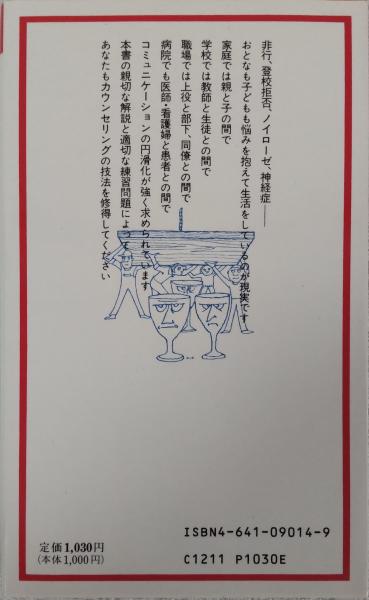 非行、登校拒否、ノイローゼ、神経症――
おとなも子どもも悩みを抱えて生活をしているのが現実です
家庭では親と子の間で
学校では教師と生徒との間で
職場では上役と部下、同僚との間で
病院でも医師・看護婦と患者との間で
コミュニケーションの円滑化が強く求められています
本書の親切な解説と適切な練習問題によって
あなたもカウンセリングの技法を修得してください
ISBN4-641-09014-9
定価1,030円
(本体1,000円)
C1211 P1030E